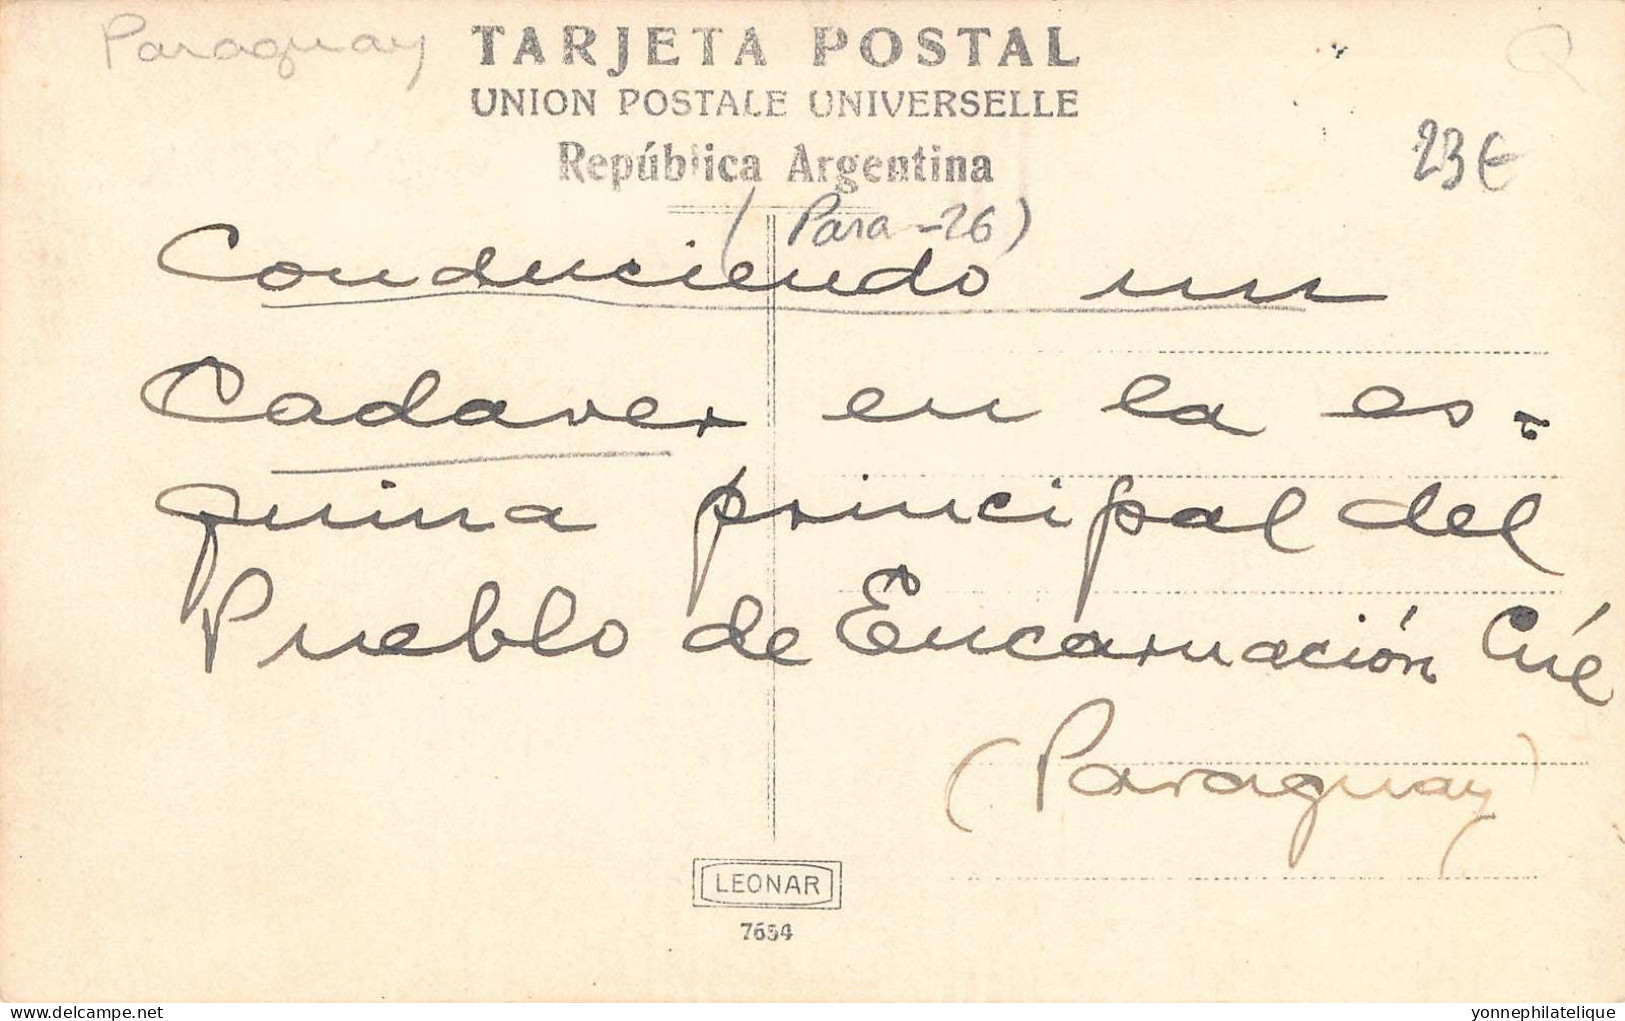 Paraguay
TARJETA POSTAL
UNION POSTALE UNIVERSELLE
República Argentina
23€
(Para-26)
Conduciendo un
Cadaver en la es-
quina principal del
Pueblo de Encarnación Cué
(Paraguay)
LEONAR
7654
delcampe.net
yonnephilatelique